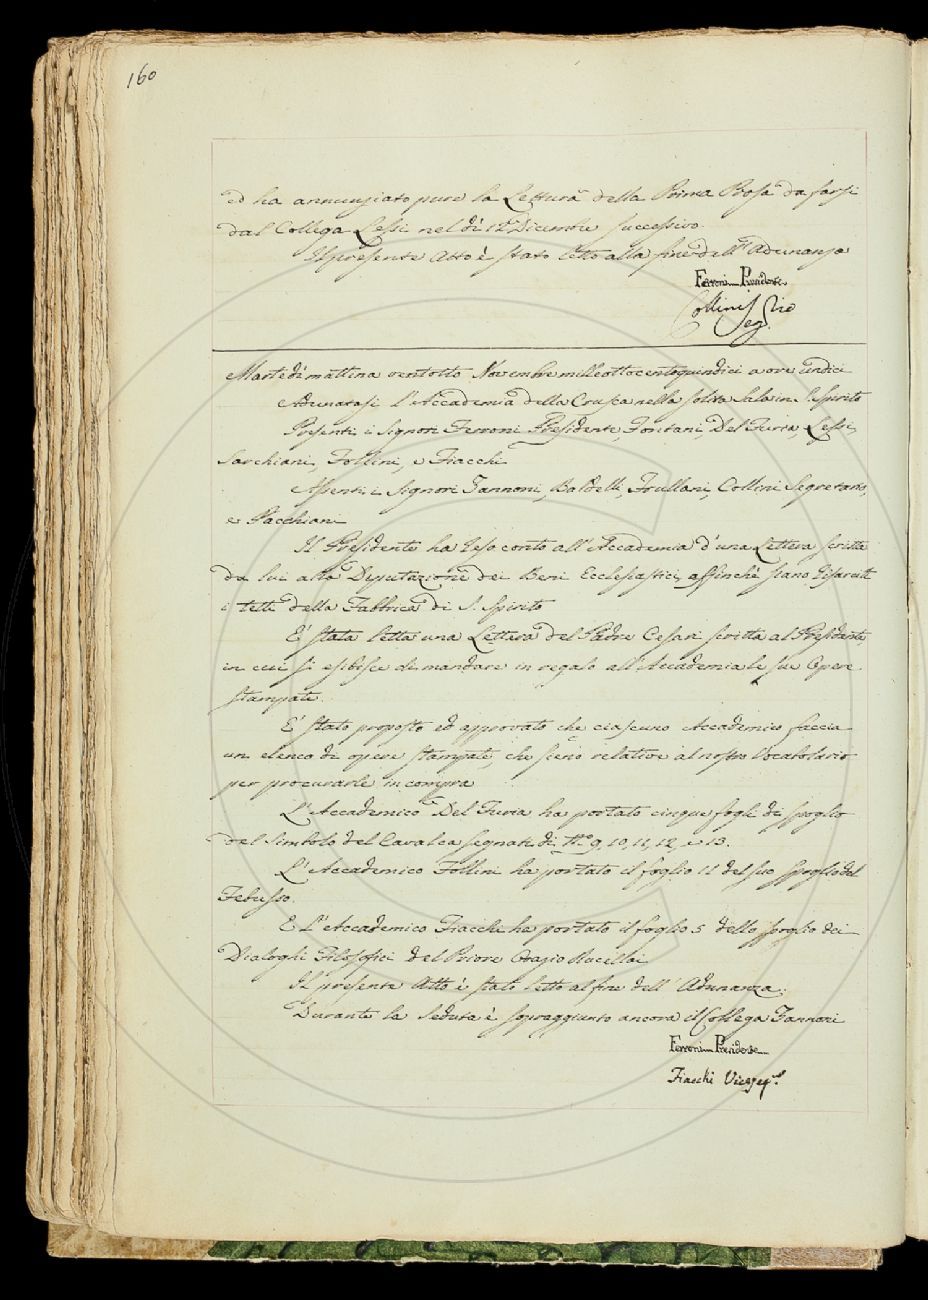 160
ed ha annunziato pure la Lettura della Prima Prosa da farsi
dal Collega Lessi nel dì 12 Dicembre successivo.
Il presente Atto è stato letto alla fine dell' Adunanza
Ferroni Presidente
Collini Seg.rio
Martedì mattina ventotto Novembre milleottocentoquindici a ore undici
Adunatasi l'Accademia della Crusca nella solita Sala in S. Spirito
Presenti i Signori Ferroni Presidente, Fontani, Del Furia, Lessi,
Sarchiani, Follini, e Fiacchi
Assenti i Signori Zannoni, Baldelli, Frullani, Collini Segretario,
e Pacchiani
Il Presidente ha reso conto all'Accademia d'una Lettera scritta
da lui alla Deputazione dei Beni Ecclesiastici, affinchè siano risarciti
i tetti della Fabbrica di S. Spirito
E' stata letta una Lettera del Padre Cesari scritta al Presidente,
in cui si esibisce di mandare in regalo all'Accademia le sue Opere
stampate.
E' stato proposto ed approvato che ciascuno Accademico faccia
un elenco di opere stampate, che sieno relative al nostro Vocabolario
per procurarle in compra
L'Accademico Del Furia ha portato cinque fogli di spoglio
del Simbolo del Cavalca segnati di N.o 9, 10, 11, 12, e 13.
L'Accademico Follini ha portato il foglio 11 del suo spoglio del
Febusso.
E L'Accademico Fiacchi ha portato il foglio 5 dello spoglio dei
Dialoghi Filosofici del Priore Orazio Rucellai
Il presente Atto è stato letto al fine dell' Adunanza.
Durante la Seduta è sopraggiunto ancora il Collega Zannoni
Ferroni Presidente
Fiacchi Viceseg.o